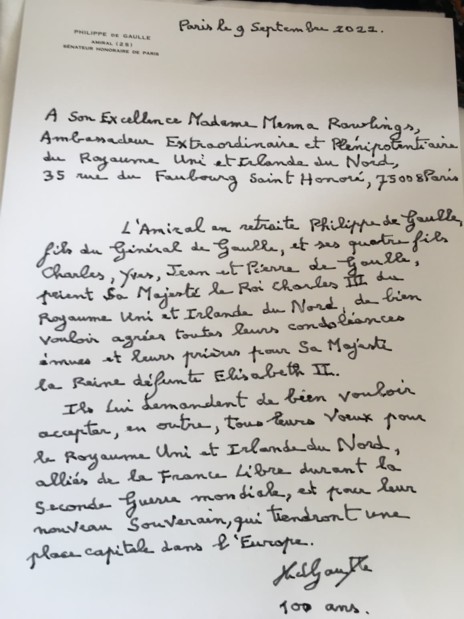 Paris le 9 Septembre 2022.
PHILIPPE DE GAULLE
AMIRAL (2S)
SÉNATEUR HONORAIRE DE PARIS
A Son Excellence Madame Menna Rawlings,
Ambassadeur Extraordinaire et Plénipotentiaire
du Royaume Uni et Irlande du Nord,
35 rue du Faubourg Saint Honoré, 75008 Paris
L'Amiral en retraite Philippe de Gaulle,
fils du Général de Gaulle, et ses quatre fils
Charles, Yves, Jean et Pierre de Gaulle,
prient Sa Majesté le Roi Charles III du
Royaume Uni et Irlande du Nord, de bien
vouloir agréer toutes leurs condoléances
émues et leurs prières pour Sa Majesté
la Reine défunte Elisabeth II.
Ils Lui demandent de bien vouloir
accepter, en outre, tous leurs vœux pour
le Royaume Uni et Irlande du Nord,
alliés de la France Libre durant la
Seconde Guerre mondiale, et pour leur
nouveau Souverain, qui tiendront une
place capitale dans l'Europe.
100 ans.